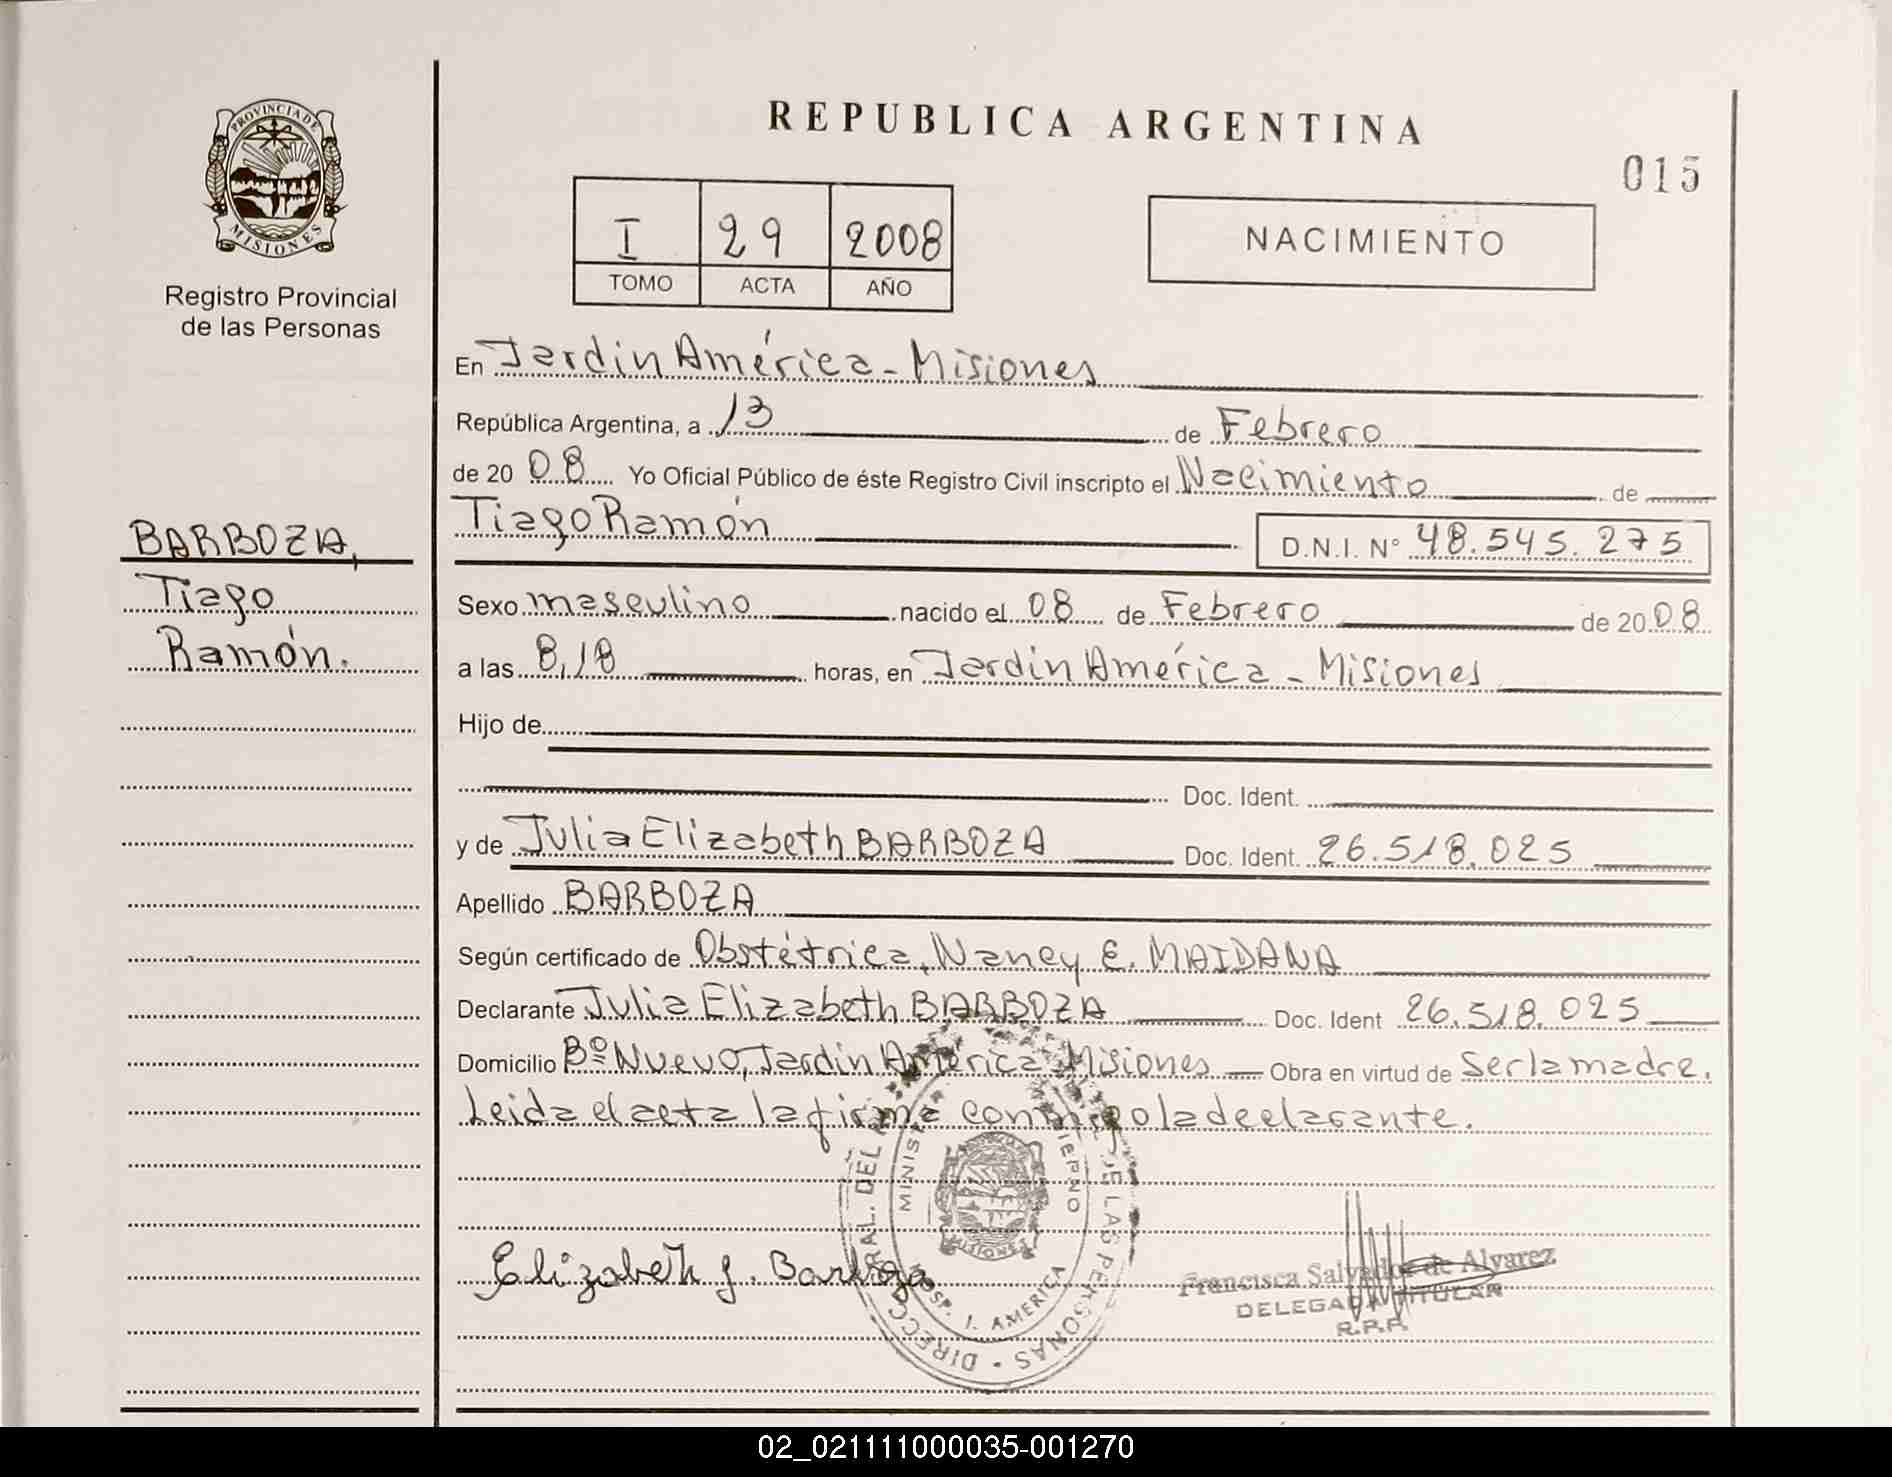 PROVINCIA DE
MISIONES
Registro Provincial
de las Personas
BARBOZA,
Tiago
Ramón.
REPUBLICA ARGENTINA
015
I 29 2008
TOMO ACTA AÑO
NACIMIENTO
En Jardin América - Misiones
República Argentina, a 13 de Febrero
de 20 08 Yo Oficial Público de éste Registro Civil inscripto el Nacimiento de
Tiago Ramón D.N.I. N° 48.545.275
Sexo masculino nacido el 08 de Febrero de 20 08
a las 8,18 horas, en Jardin América - Misiones
Hijo de
Doc. Ident.
y de Julia Elizabeth BARBOZA Doc. Ident. 26.518.025
Apellido BARBOZA
Según certificado de Obstétrica, Nancy E. MAIDANA
Declarante Julia Elizabeth BARBOZA Doc. Ident 26.518.025
Domicilio Bº Nuevo, Jardin América Misiones Obra en virtud de Ser la madre.
Leida el acta la firma conmigo la declarante.
MISIONES
HOSP. J. AMERICA
Elizabeth J. Barboza
Francisca Salvador de Alvarez
DELEGADA TITULAR
R.P.P.
02_021111000035-001270